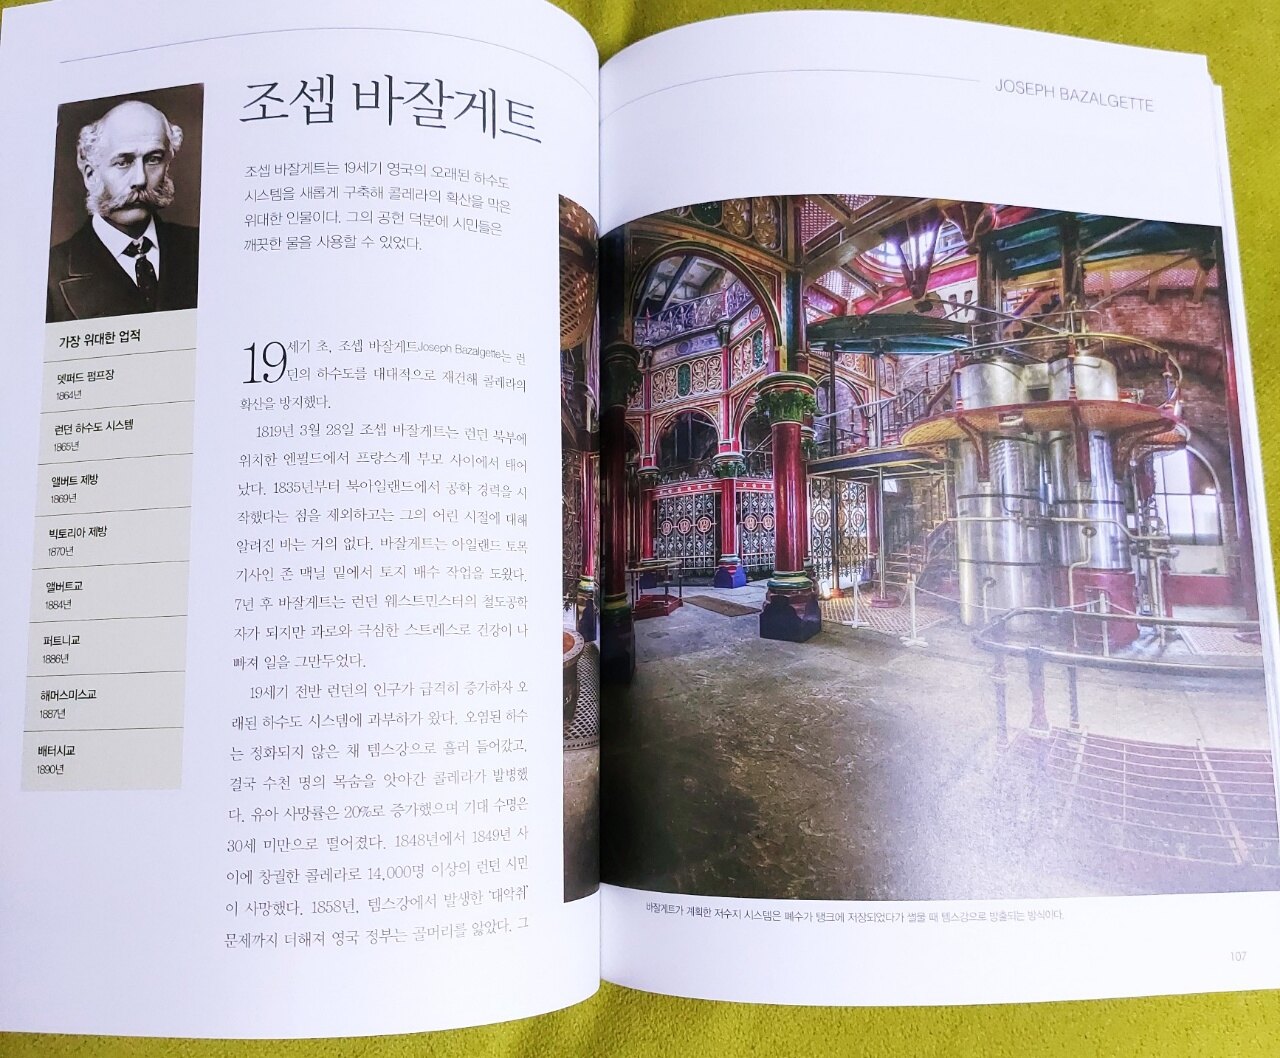 조셉 바잘게트
조셉 바잘게트는 19세기 영국의 오래된 하수도
시스템을 새롭게 구축해 콜레라의 확산을 막은
위대한 인물이다. 그의 공헌 덕분에 시민들은
깨끗한 물을 사용할 수 있었다.
가장 위대한 업적
뎃퍼드 펌프장
1864년
런던 하수도 시스템
1865년
앨버트 제방
1869년
빅토리아 제방
1870년
앨버트교
1884년
퍼트니교
1886년
해머스미스교
1887년
배터시교
1890년
19세기 초, 조셉 바잘게트Joseph Bazalgette는 런
던의 하수도를 대대적으로 재건해 콜레라의
확산을 방지했다.
1819년 3월 28일 조셉 바잘게트는 런던 북부에
위치한 엔필드에서 프랑스계 부모 사이에서 태어
났다. 1835년부터 북아일랜드에서 공학 경력을 시
작했다는 점을 제외하고는 그의 어린 시절에 대해
알려진 바는 거의 없다. 바잘게트는 아일랜드 토목
기사인 존 맥닐 밑에서 토지 배수 작업을 도왔다.
7년 후 바잘게트는 런던 웨스트민스터의 철도공학
자가 되지만 과로와 극심한 스트레스로 건강이 나
빠져 일을 그만두었다.
19세기 전반 런던의 인구가 급격히 증가하자 오
래된 하수도 시스템에 과부하가 왔다. 오염된 하수
는 정화되지 않은 채 템스강으로 흘러 들어갔고,
결국 수천 명의 목숨을 앗아간 콜레라가 발병했
다. 유아 사망률은 20%로 증가했으며 기대 수명은
30세 미만으로 떨어졌다. 1848년에서 1849년 사
이에 창궐한 콜레라로 14,000명 이상의 런던 시민
이 사망했다. 1858년, 템스강에서 발생한 '대악취'
문제까지 더해져 영국 정부는 골머리를 앓았다. 그
JOSEPH BAZALGETTE
바잘게트가 계획한 저수지 시스템은 폐수가 탱크에 저장되었다가 썰물 때 템스강으로 방출되는 방식이다.
107